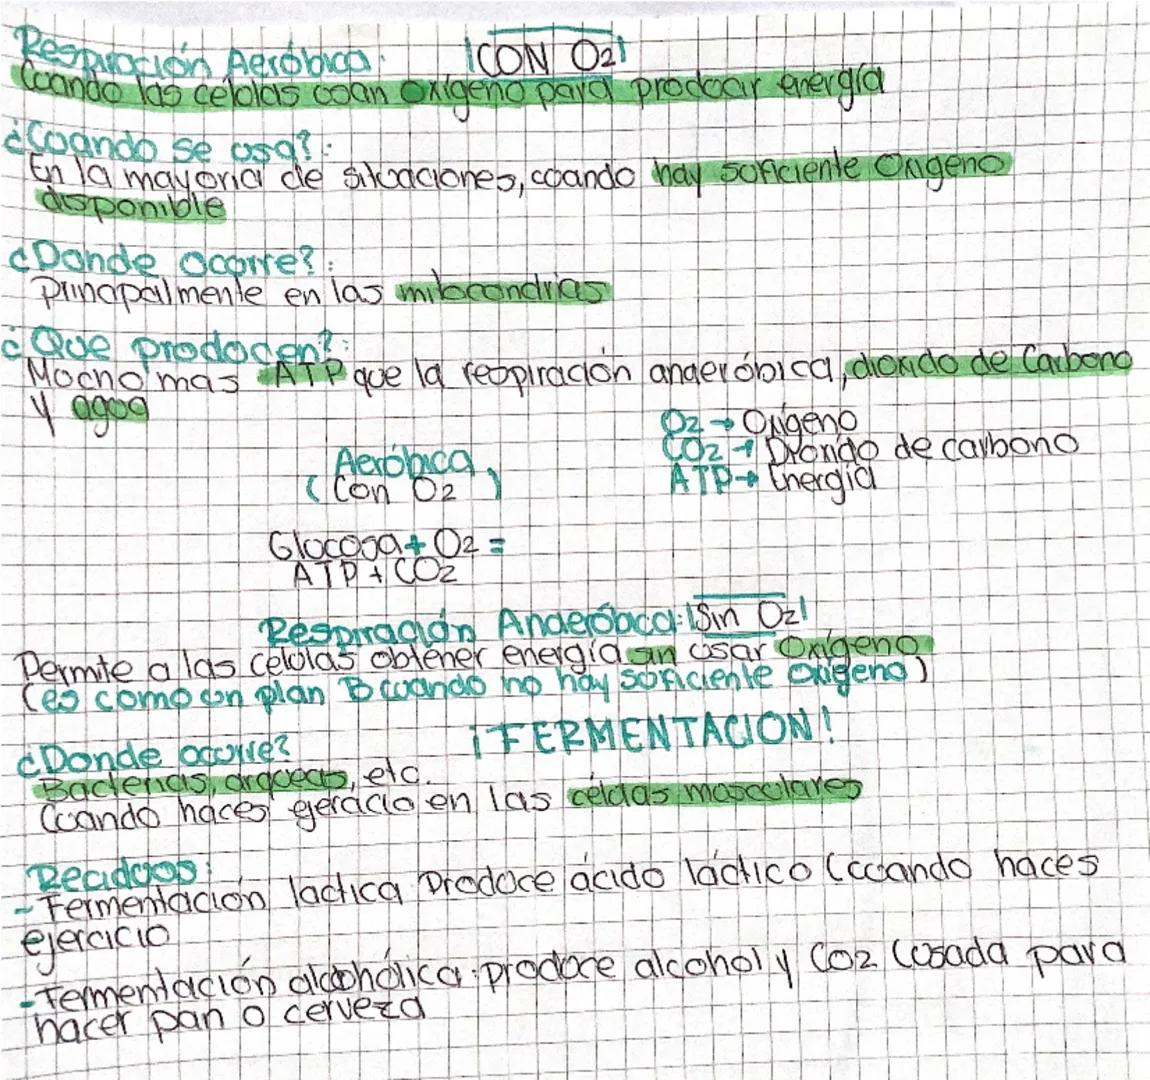 Respiración Aeróbica: CON O2
Cuando las celulas usan oxígeno para producir energía
¿Cuando se usa?:
En la mayoria de situaciones, cuando hay suficiente Oxigeno
disponible
¿Donde ocorre?:
Principalmente en las mitocondrias
¿Que producen?:
Mucho mas ATP que la respiración anaeróbica, dioxido de Carbono
y agua
O2 → Oxígeno
CO2 → Dioxido de carbono
ATP → Energía
Aeróbica
(Con O2)
Glucosa + O2 =
ATP + CO2
Respiración Anaeróbica: Sin O2
Permite a las celulas obtener energía sin usar Oxígeno
(es como un plan B cuando no hay suficiente oxigeno)
¿Donde ocurre? ¡FERMENTACION!
Bacterias, arqueas, etc.
Cuando haces ejercicio en las célclas musculares
Reciduos:
- Fermentación lactica Produce ácido láctico (cuando haces
ejercicio
- Fermentación alcohólica: produce alcohol y CO2 (usada para
hacer pan o cerveza